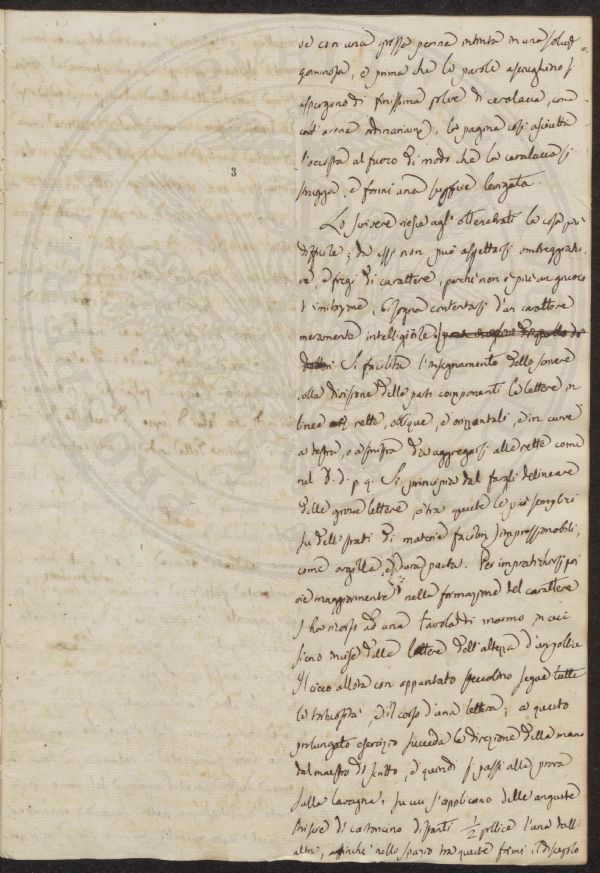 se con una grossa penna intinta in una soluz.
gommosa, e prima che le parole asciughino si
aspergono di finissima polve di ceralacca, come
coll'arena ordinariam., la pagina così asciutta
s'accosta al fuoco di modo che la ceralacca si
strugga, e formi una superficie levigata.
3
Lo scrivere riesce agl'ottenebrati la cosa più
difficile; da essi non può aspettarsi ombreggiatu-
re, e fregi di carattere, perchè non è più un giuoco
Bisogna contentarsi d'un carattere
meramente intelligibile.
Si facilita l'insegnamento dello scrivere
colla divisione delle parti componenti le lettere in
linee rette, oblique, e orizzontali, e in curve
a destra, o a sinistra da aggregarsi alle rette come
nel b. d. p. q. Si principia dal fargli delineare
delle grosse lettere, e tra queste le più semplici
su dell'strati di materie facilm. impressionabili,
come argilla, e dura pasta. Per impratichirsi poi
vie maggiormente nella formazione del carattere
s'ha ricorso ad una tavola di marmo, in cui
sieno incise delle lettere dell'altezza d'un pollice
Il cieco allora con appuntato segue tutte
le tortuosità, ed il corso d'una lettera; a questo
prolungato esercizio succeda la direzione della mano
dal maestro di scritto, e quindi si passi alla prova
sulla lavagna, su cui s'applicano delle anguste
striscie di cartoncino distanti 1/2 pollice l'una dall'
altra, affinchè nello spazio tra queste il discepolo